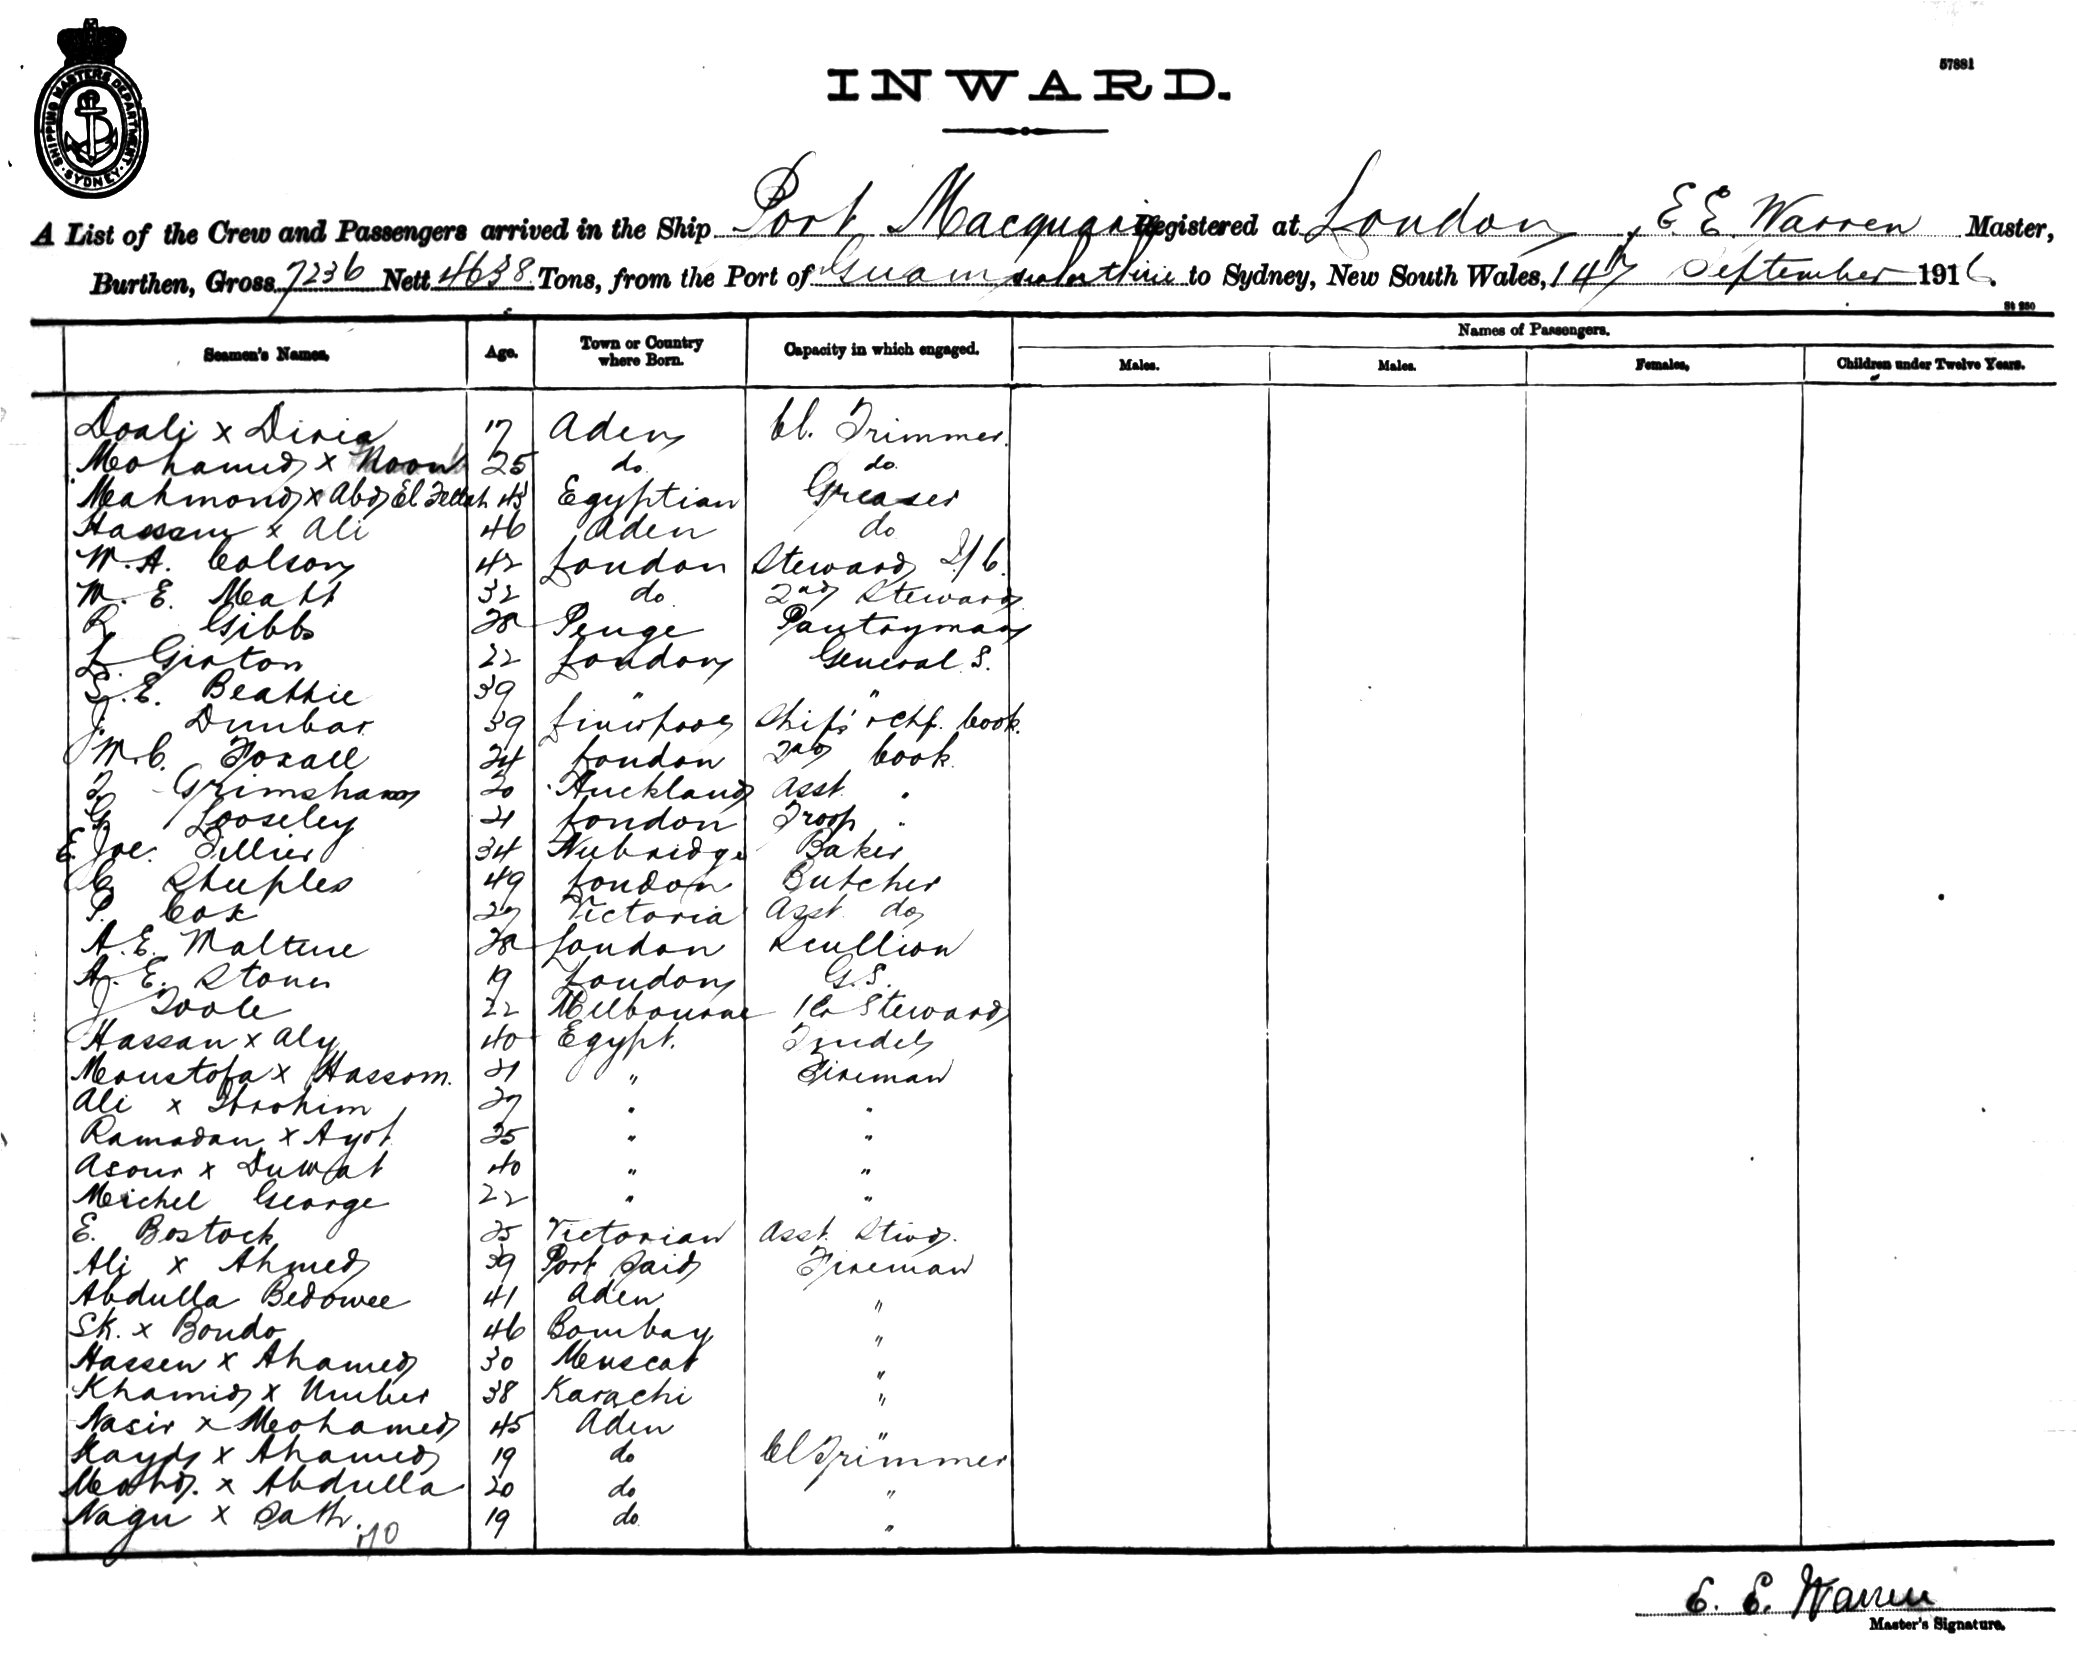 SHIPPING MASTERS DEPARTMENT
SYDNEY
57881
INWARD.
A List of the Crew and Passengers arrived in the Ship Port Macquarie Registered at London, E. E. Warren Master,
Burthen, Gross 7236 Nett 4638 Tons, from the Port of to Sydney, New South Wales, 14th September 1916.
St 250
Seamen's Names. Age. Town or Country where Born. Capacity in which engaged. Names of Passengers.
Males. Males. Females. Children under Twelve Years.
Doali x Diria 17 Aden Cl. Trimmer.
Mohamed x Noon 25 do do.
Mahmond x Abd El Fettah 43 Egyptian Greaser
Hassem x Ali 46 Aden do
W. A. Colson 42 London Steward
W. E. Matt 32 do 2nd Steward
R Gibbs 28 Penge Pantryman
L. Girton 22 London General S.
S. E. Beattie 39 " "
J. Dunbar 39 Liverpool Ship's & Chf. Cook.
W. C. Foxall 24 London 2nd Cook.
F Grimshaw 20 Auckland Asst. "
G Looseley 21 London Troop "
E. Joe. Tellier 34 Nubridge Baker
C Steeples 49 London Butcher
P. Cox 27 Victoria Asst. do
A. E. Maltene 28 London Scullion
A. E. Stones 19 London G.S.
J Toole 22 Melbourne Steward
Hassan x Aly 40 Egypt. Tindel
Moustofa x Hassom. 21 " Fireman
Ali x Ibrohim 27 " "
Ramadan x Ayot 25 " "
Asour x Duwat 40 " "
Meichel George 22 " "
E. Bostock 25 Victorian Asst. Stwd.
Ali x Ahmed 39 Port Said Fireman
Abdulla Bedowee 41 Aden "
Sk. x Bondo 46 Bombay "
Hassen x Ahamed 30 Muscat "
Khamid x Umber 38 Karachi "
Nasir x Mohamed 45 Aden "
Kayd x Ahamed 19 do Cl Trimmer
Mohd. x Abdulla 20 do "
Nagu x Sath. 19 do "
E. E. Warren
Master's Signature.